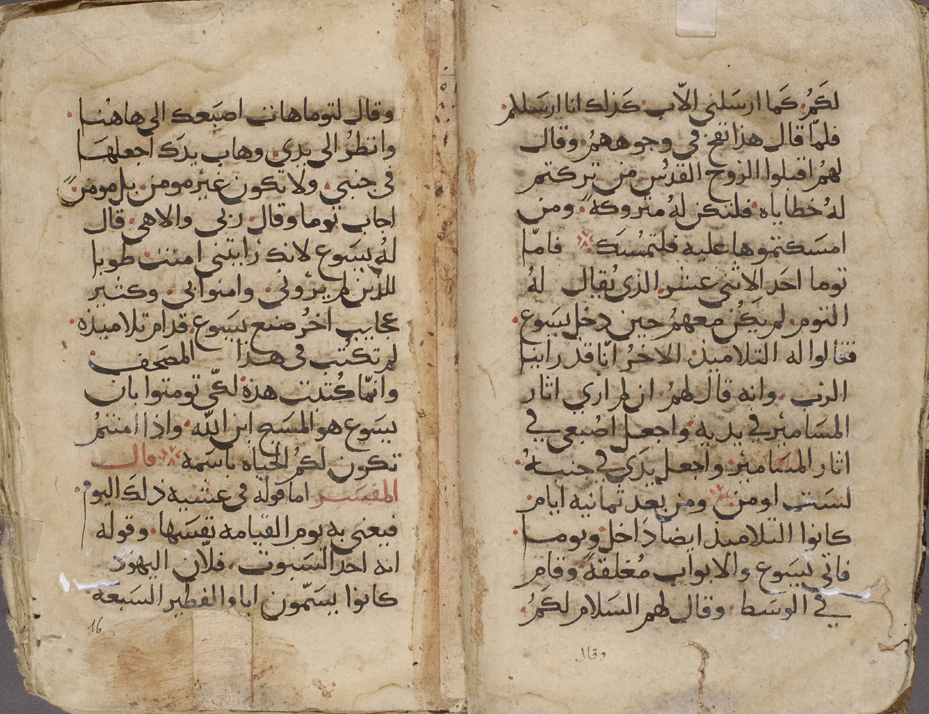 لكم كما ارسلني الاب كذلك انا ارسلكم
فلما قال هذا نفخ في وجوههم وقال
لهم اقبلوا الروح القدس من تركتم
له خطاياه فلتكن له متروكة ومن
امسكتموها عليه فلتمسك فاما
توما احد الاثني عشر الذي يقال له
التوم لم يكن معهم حين دخل يسوع
فقالوا له التلاميذ الاخر انا قد راينا
الرب وانه قال لهم ان لم اري اثار
المسامير في يديه واجعل اصبعي في
اثار المسامير واجعل يدي في جنبه
لست اومن ومن بعد ثمانيه ايام
كانوا التلاميذ ايضا داخل وتوما
فاتي يسوع والابواب مغلقة وقام
في الوسط وقال لهم السلام لكم
وقال
وقال لتوما هات اصبعك الي هاهنا
وانظر الي يدي وهات يدك اجعلها
في جنبي ولا تكون غير مومن بل مومن
اجاب توما وقال ربي والاهي قال
له يسوع لانك رايتني امنت طوبا
للذين لم يروني وامنوا بي وكثير
عجايب اخر صنع يسوع قدام تلاميذه
لم تكتب في هذا المصحف
وانما كتبت هذه لكي تومنوا بان
يسوع هو المسيح ابن الله واذا امنتم
تكون لكم الحياه باسمه قال
المفسر اما قوله في عشيه ذلك اليوم
فيعني به يوم القيامه نفسها وقوله
انه احد السبوت فلان اليهود
كانوا يسمون اياو الفطير السبعه
16